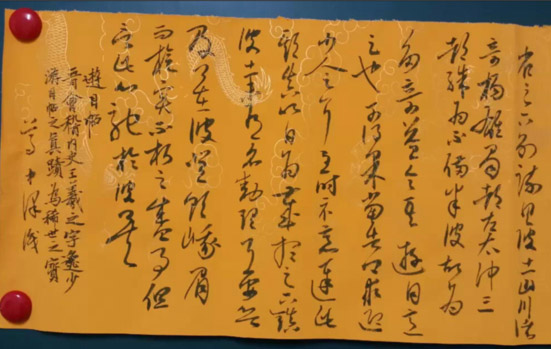 省足下別疏具彼土山川諸
奇楊雄蜀都左太沖三
都殊為不備悉彼故為
多奇益令其遊目意
足也可得果當告卿求迎
少人足耳至時示意遲此
期真以日為歲想足下鎮
彼土未有動理耳要欲
及卿在彼登汶領峨眉
而旋實不朽之盛事但
言此心以馳於彼矣
遊目帖
晉會稽內史王羲之字逸少
游目帖之真蹟為稀世之寶